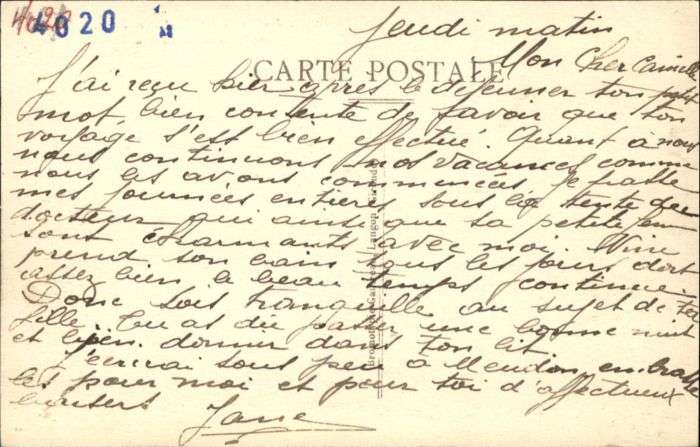 4020
4020
Jeudi matin
Mon Cher Camille
CARTE POSTALE
J'ai reçu hier après le déjeuner ton petit
mot, bien contente de savoir que ton
voyage s'est bien effectué. Quant à nous
nous continuons nos vacances comme
nous les avons commencées. Je passe
mes journées entières sous la tente du
docteur qui ainsi que sa petite fem
sont charmants avec moi.
prend son bain tous les jours, dort
assez bien, le beau temps continue.
Donc sois tranquille au sujet de ta
fille. Tu as dû passer une bonne nuit
et bien dormer dans ton lit.
J'écrirai sous peu à Meudon, embrasse
les pour moi et pour toi d'affectueux
baisers
Jane